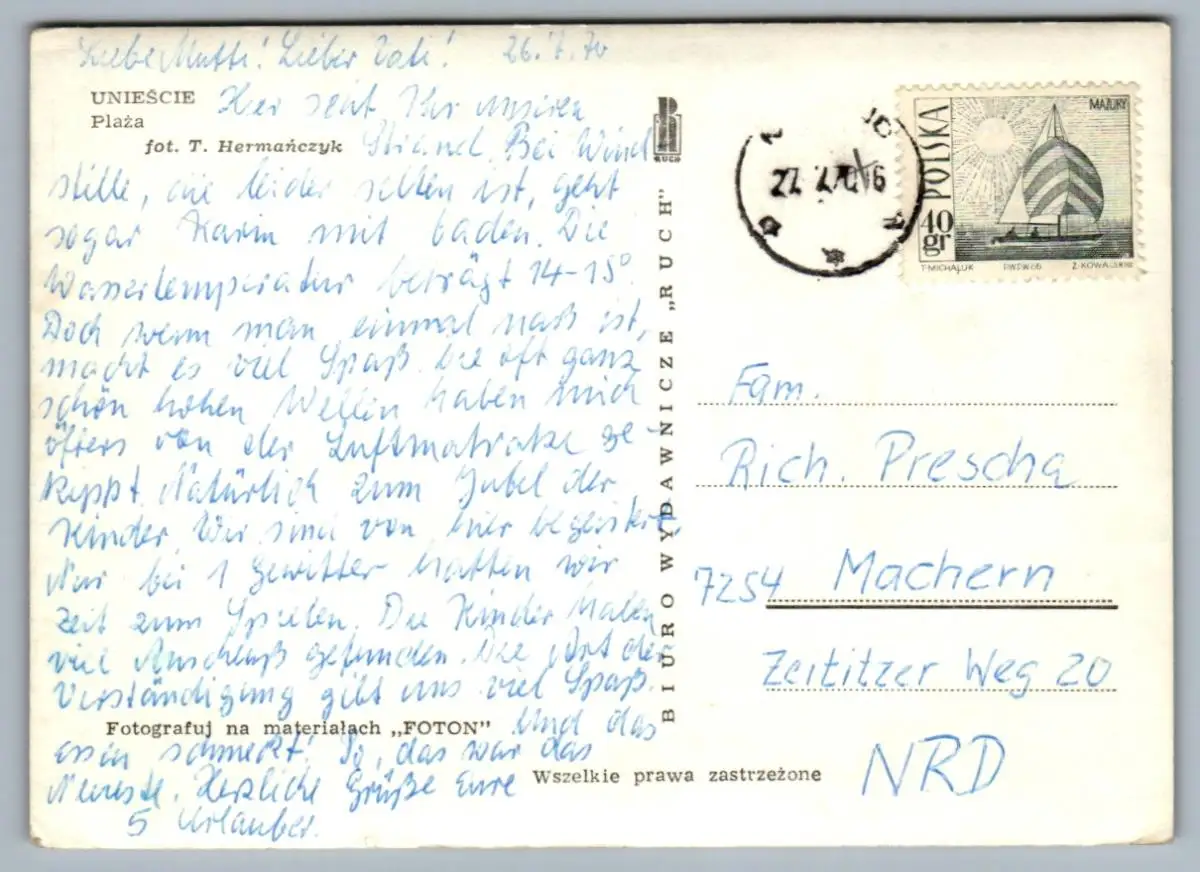 Liebe Mutti! Lieber Vati! 26.7.70
UNIEŚCIE
Plaża
fot. T. Hermańczyk
Hier seht Ihr unseren
Strand. Bei Wind
stille, die leider selten ist, geht
sogar Karin mit baden. Die
Wassertemperatur beträgt 14-15°
Doch wenn man einmal naß ist,
macht es viel Spaß. Die oft ganz
schön hohen Wellen haben mich
öfters von der Luftmatratze ge-
kippt. Natürlich zum Jubel der
Kinder. Wir sind von hier begeistert
Nur bei 1 Gewitter hatten wir
Zeit zum Spielen. Die Kinder haben
viel Anschluß gefunden. Die Art der
Verständigung gibt uns viel Spaß.
Fotografuj na materiałach „FOTON"
Und das
essen schmeckt! So, das war das
Neueste. Herzliche Grüße Eure
5 Urlauber.
Wszelkie prawa zastrzeżone
RUCH
BIURO WYDAWNICZE „RUCH"
27.7.70 16
POLSKA
MAZURY
40
gr
T. MICHALUK PWPW 66 Z. KOWALSKI
Fam.
Rich. Prescha
7254 Machern
Zeititzer Weg 20
NRD